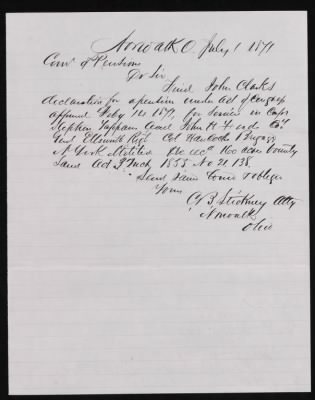 Norwalk O. July 1 1871
Com of Pensions
Dr Sir
Find John Clarks
declaration for a pension under act of Congress
approved Feby 14 1871, for service in Capts
Stephen Tappan and John H Co's
Regt Col Hancocks Brigade
N York Militia Rec 160 acres Bounty
Land Act 3 Mch 1855 No 21 138.
Send same Come & oblige
Yours
C B Stickney Atty
Norwalk
Ohio